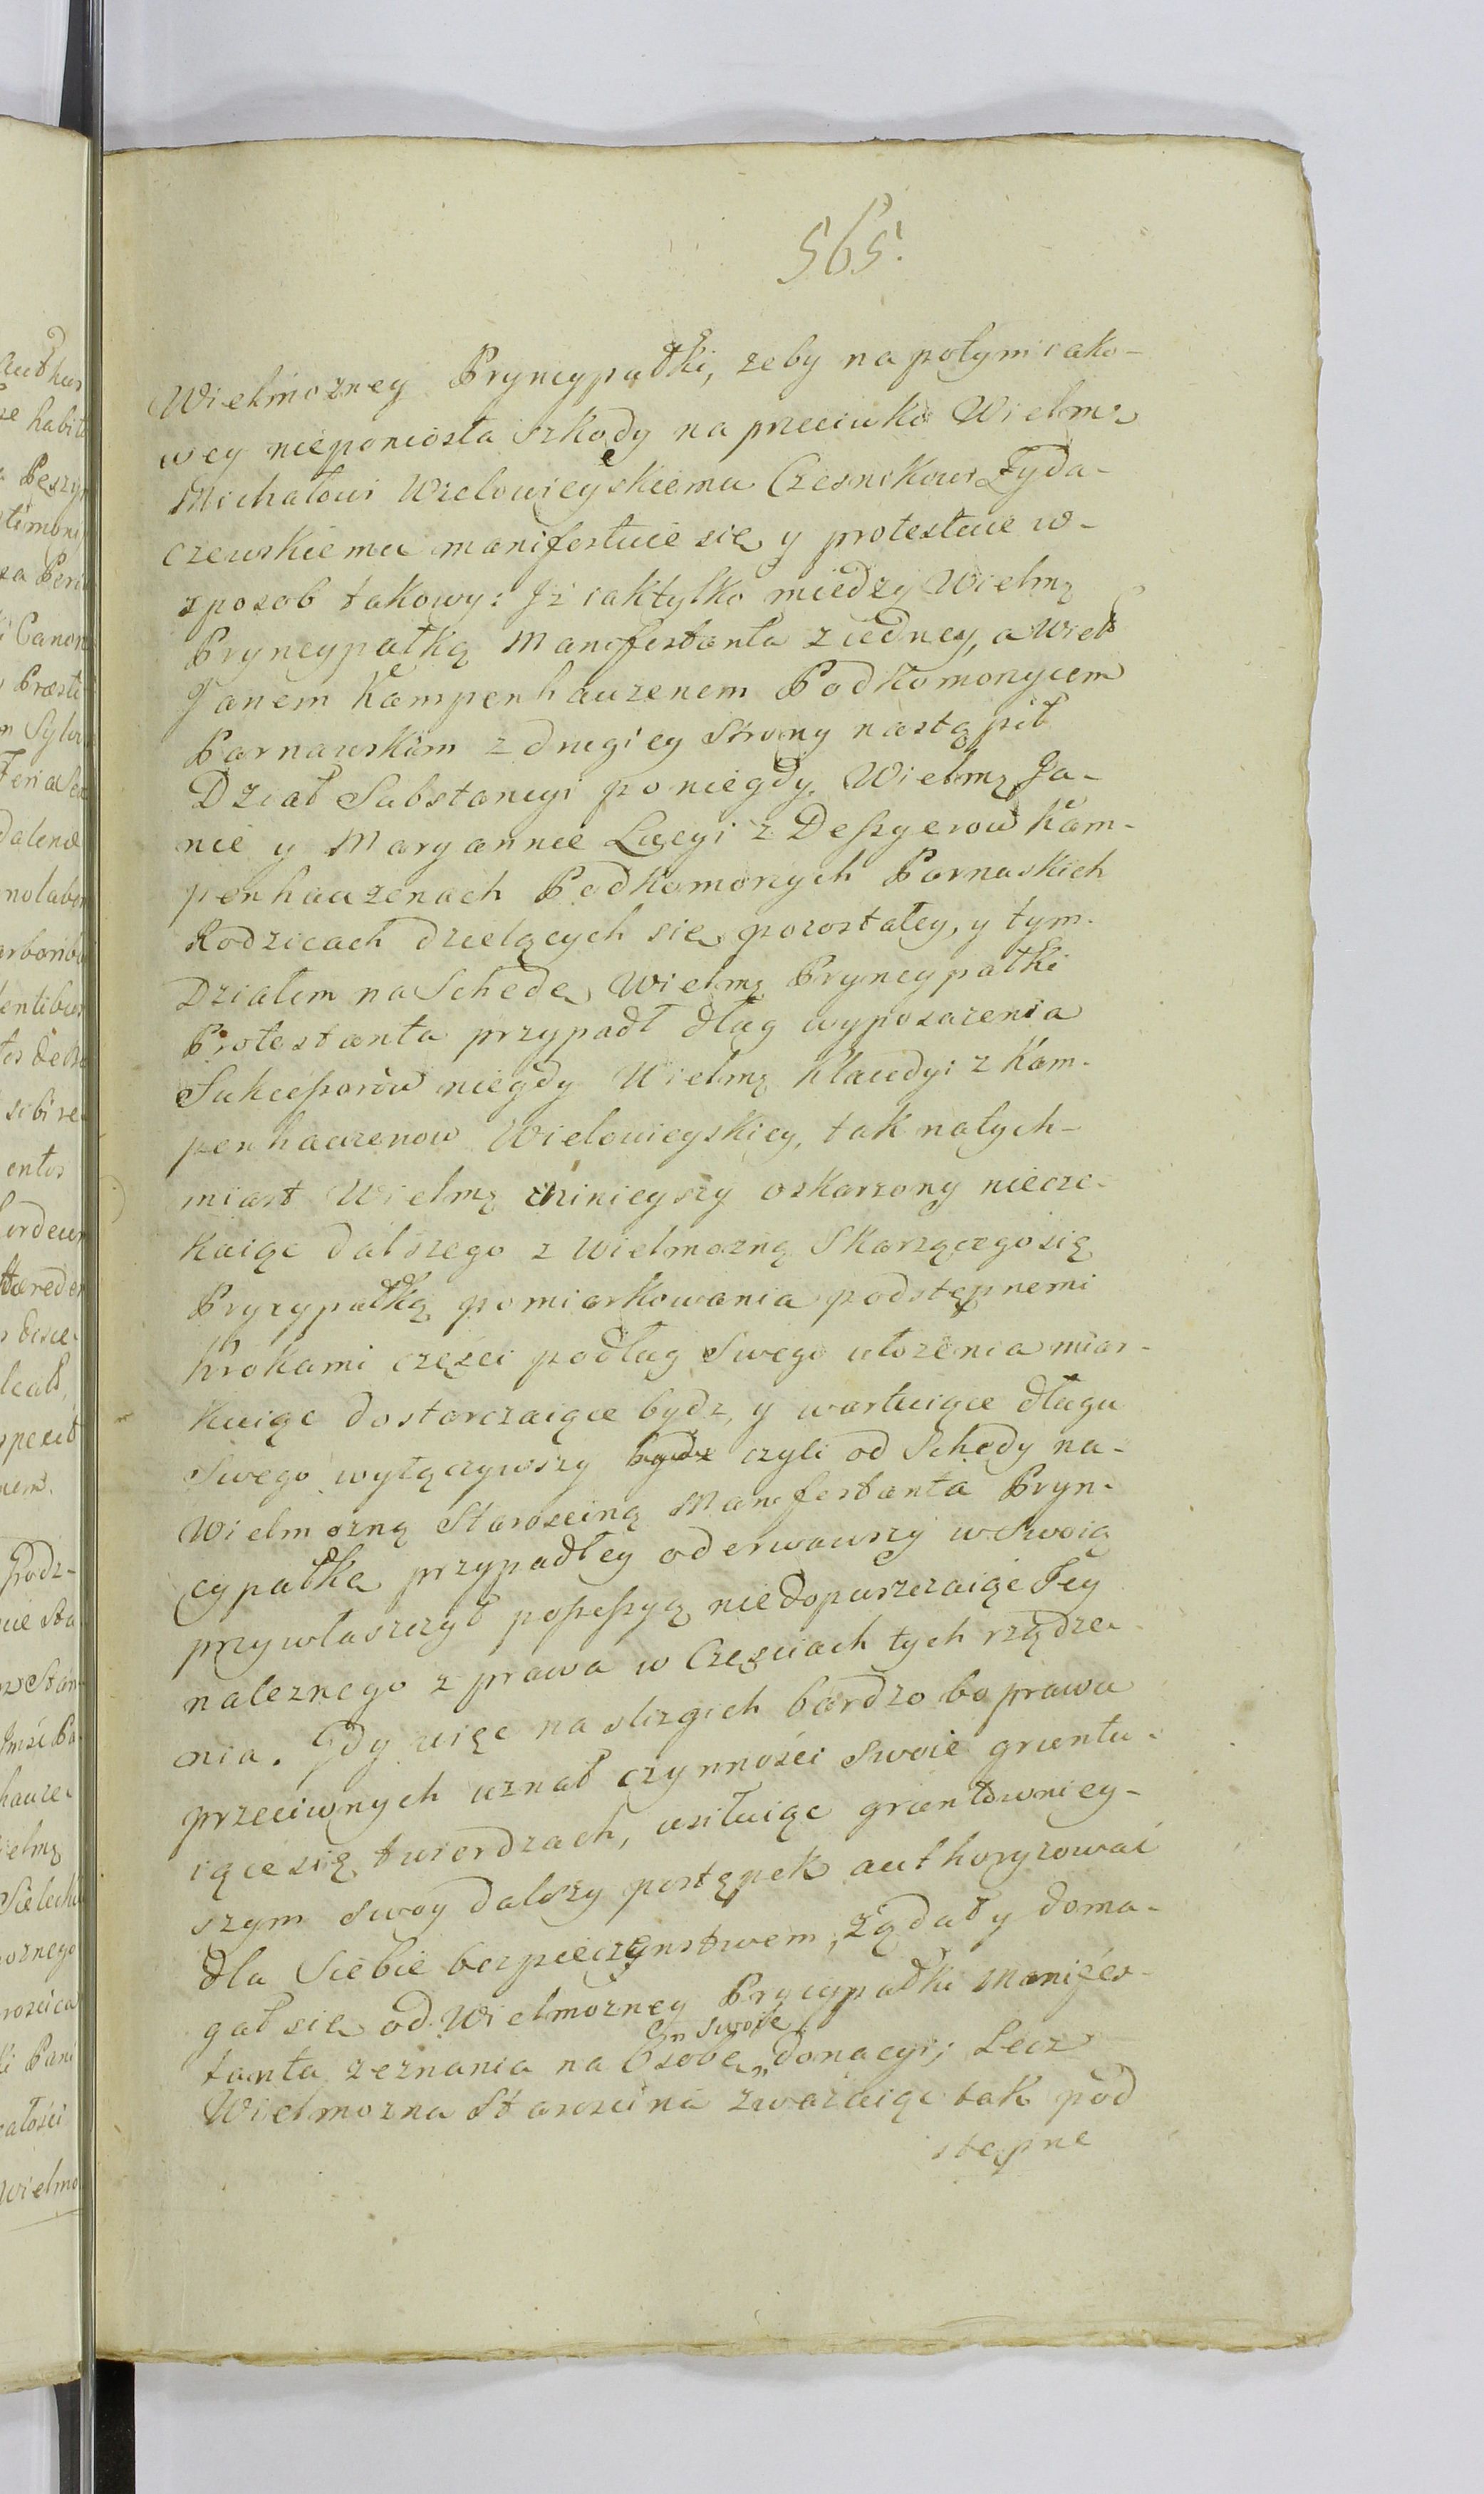 565.
Wielmozney Pryncypałki, zeby na potym iako-
wey nieponiosła szkody na przeciwko Wielmę
Michałowi Wielowieyskiemu Czesnikowi Zyda-
czewskiemu manifestuie się y protestuie w-
sposob takowy: Iż iak tylko między Wielmą
Pryncypałką Manifestanta z iedney, a Wiel
Janem Kampenhauzenem Podkomorzycem
Parnawskim z drugiey strony nastąpił
Dział Substancyi po niegdy Wielmę Ja-
nie y Maryannie Lucyi z Deszyerow Kam-
penhauzenach Podkomorzych Parnaskich
Rodzicach dzielących się pozostałey, y tym
Działem na Schedę Wielmę Pryncypałki
Protestanta przypadł dług wyposazenia
Sukcessorów niegdy Wielmę Klaudyi z Kam-
penhauzenow Wielowieyskiey, tak natych-
miast Wielmę ninieyszy oskarzony niecze-
kaiąc dalszego z Wielmozną Skarzącego się
Pryrypałką pomiarkowania podstępnemi
krokami częsci podług Swego ułozenia miar-
kuiąc dostarczaiące bydz, y wartuiące długu
Swego wyłączywszy bydz czyli od Schedy na-
Wielmozną Starościną Manifestanta Pryn-
cypałkę przypadłey oderwawszy w Swoią
przywłaszczył possessyą niedopuszczaiąc Tey
naleznego z prawa w Częsciach tych rządze-
nia. Gdy więc na slizgich bardzo bo prawu
przeciwnych uznał czynności swoie gruntu-
iące się twierdzach, usiłuiąc gruntowniey-
szym swoy dalszy postępek authoryzować
dla Siebie bezpieczynstwem, ządał y doma-
gał się od Wielmozney Prycypałki Manifes-
tanta zeznania na Osobę swoię donacyi; Lecz
Wielmozna Starościna zwaźaiąc tak pod
stępne